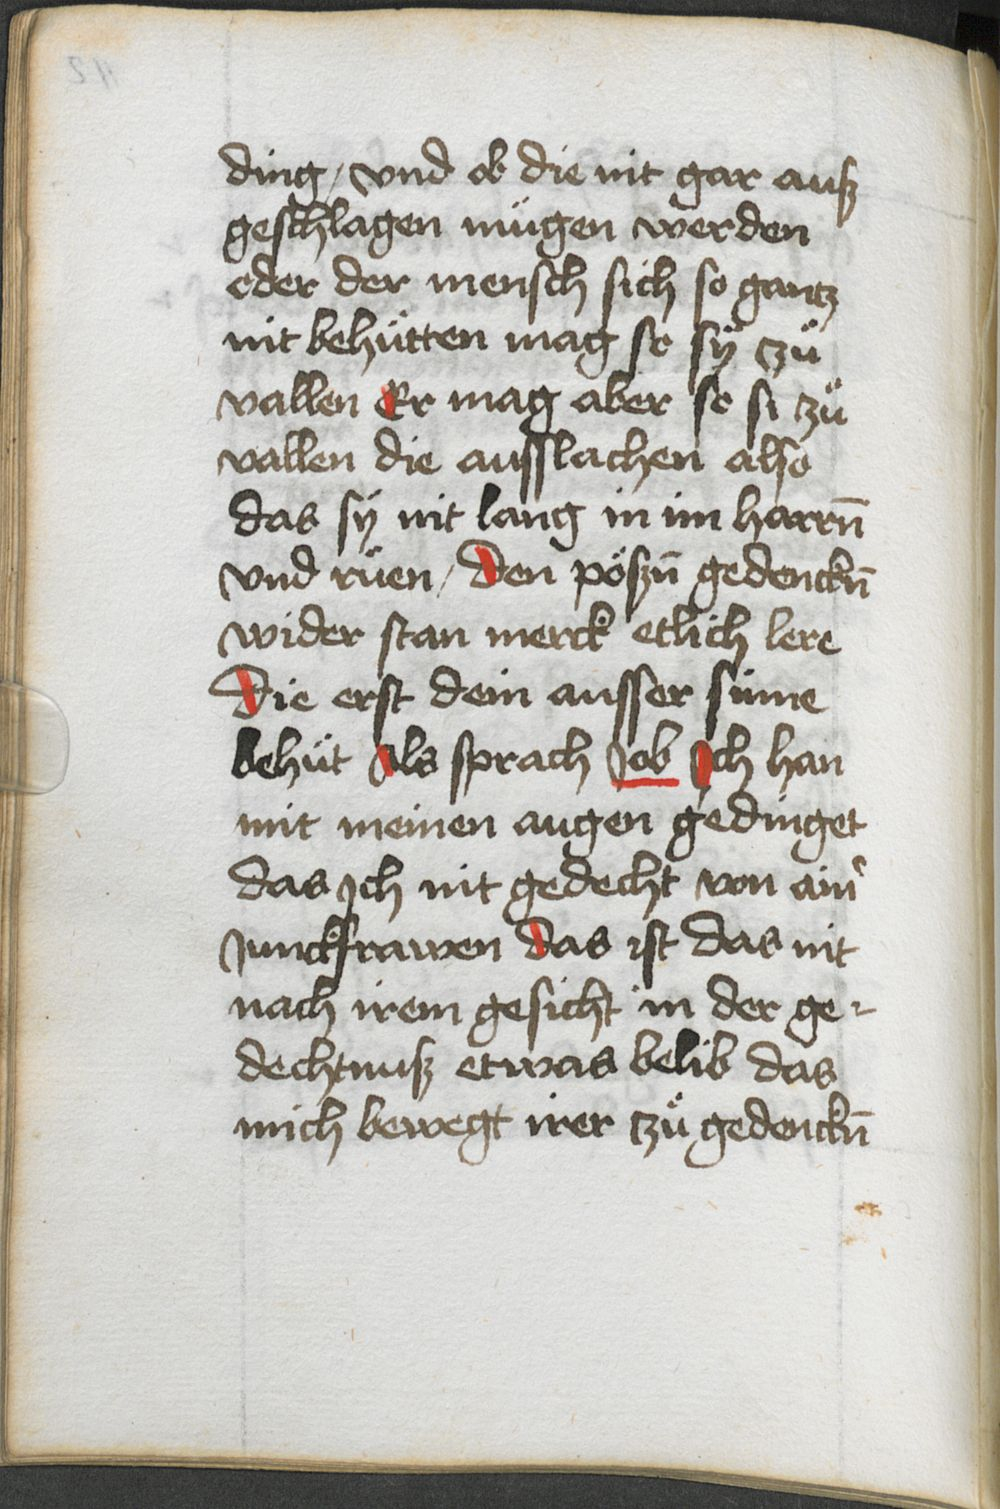 ding / vnd ob die nit gar ausz
geschlagen mügen werden
oder der mensch sich so gantz
nit behütten mag so sÿ tzü
vallen Er mag aber so si tzü
vallen die ausslachen also
das sÿ nit lang in im harrn̄
vnd rüen / Den pöszn̄ gedenckn̄
wider stan merck etlich lere
Die erst dein ausser sinne
behüt Als sprach Job Ich han
mit meinen augen gedinget
das Ich nit gedecht von ain᷑
Junckfrawen Das ist das nit
nach irem gesicht in der ge-
dechtnusz etwas belib das
mich bewegt irer tzü gedenckn̄